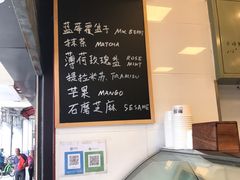 蓝莓覆盆子 MIX BERRY
抹茶 MATCHA
薄荷玫瑰盐 ROSE
MINT
提拉米苏 TIRAMISU
芒果 MANGO
石磨芝麻 SESAME